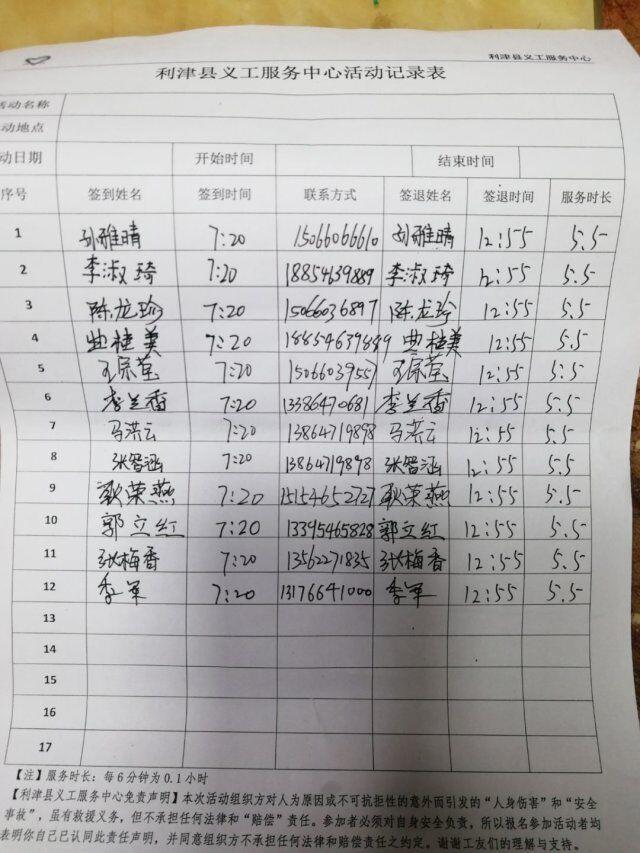 利津县义工服务中心
利津县义工服务中心活动记录表
活动名称
动地点
动日期 开始时间 结束时间
序号 签到姓名 签到时间 联系方式 签退姓名 签退时间 服务时长
1 孙雅晴 7:20 15066066610 孙雅晴 12:55 5.5
2 李淑琦 7:20 18854639889 李淑琦 12:55 5.5
3 陈龙珍 7:20 15066036897 陈龙珍 12:55 5.5
4 曲桂美 7:20 18854639889 曲桂美 12:55 5.5
5 王保莹 7:20 15066039557 王保莹 12:55 5.5
6 李兰香 7:20 13386470681 李兰香 12:55 5.5
7 马洪云 7:20 13864719898 马洪云 12:55 5.5
8 张智涵 7:20 13864719898 张智涵 12:55 5.5
9 耿荣燕 7:20 15154652727 耿荣燕 12:55 5.5
10 郭立红 7:20 13395465828 郭立红 12:55 5.5
11 张梅香 7:20 13562271835 张梅香 12:55 5.5
12 李军 7:20 13176641000 李军 12:55 5.5
13
14
15
16
17
【注】服务时长：每6分钟为0.1小时
【利津县义工服务中心免责声明】本次活动组织方对人为原因或不可抗拒性的意外而引发的“人身伤害”和“安全
事故”，虽有救援义务，但不承担任何法律和“赔偿”责任。参加者必须对自身安全负责，所以报名参加活动者均
表明你自己已认同此责任声明，并同意组织方不承担任何法律和赔偿责任之约定。谢谢工友们的理解与支持。